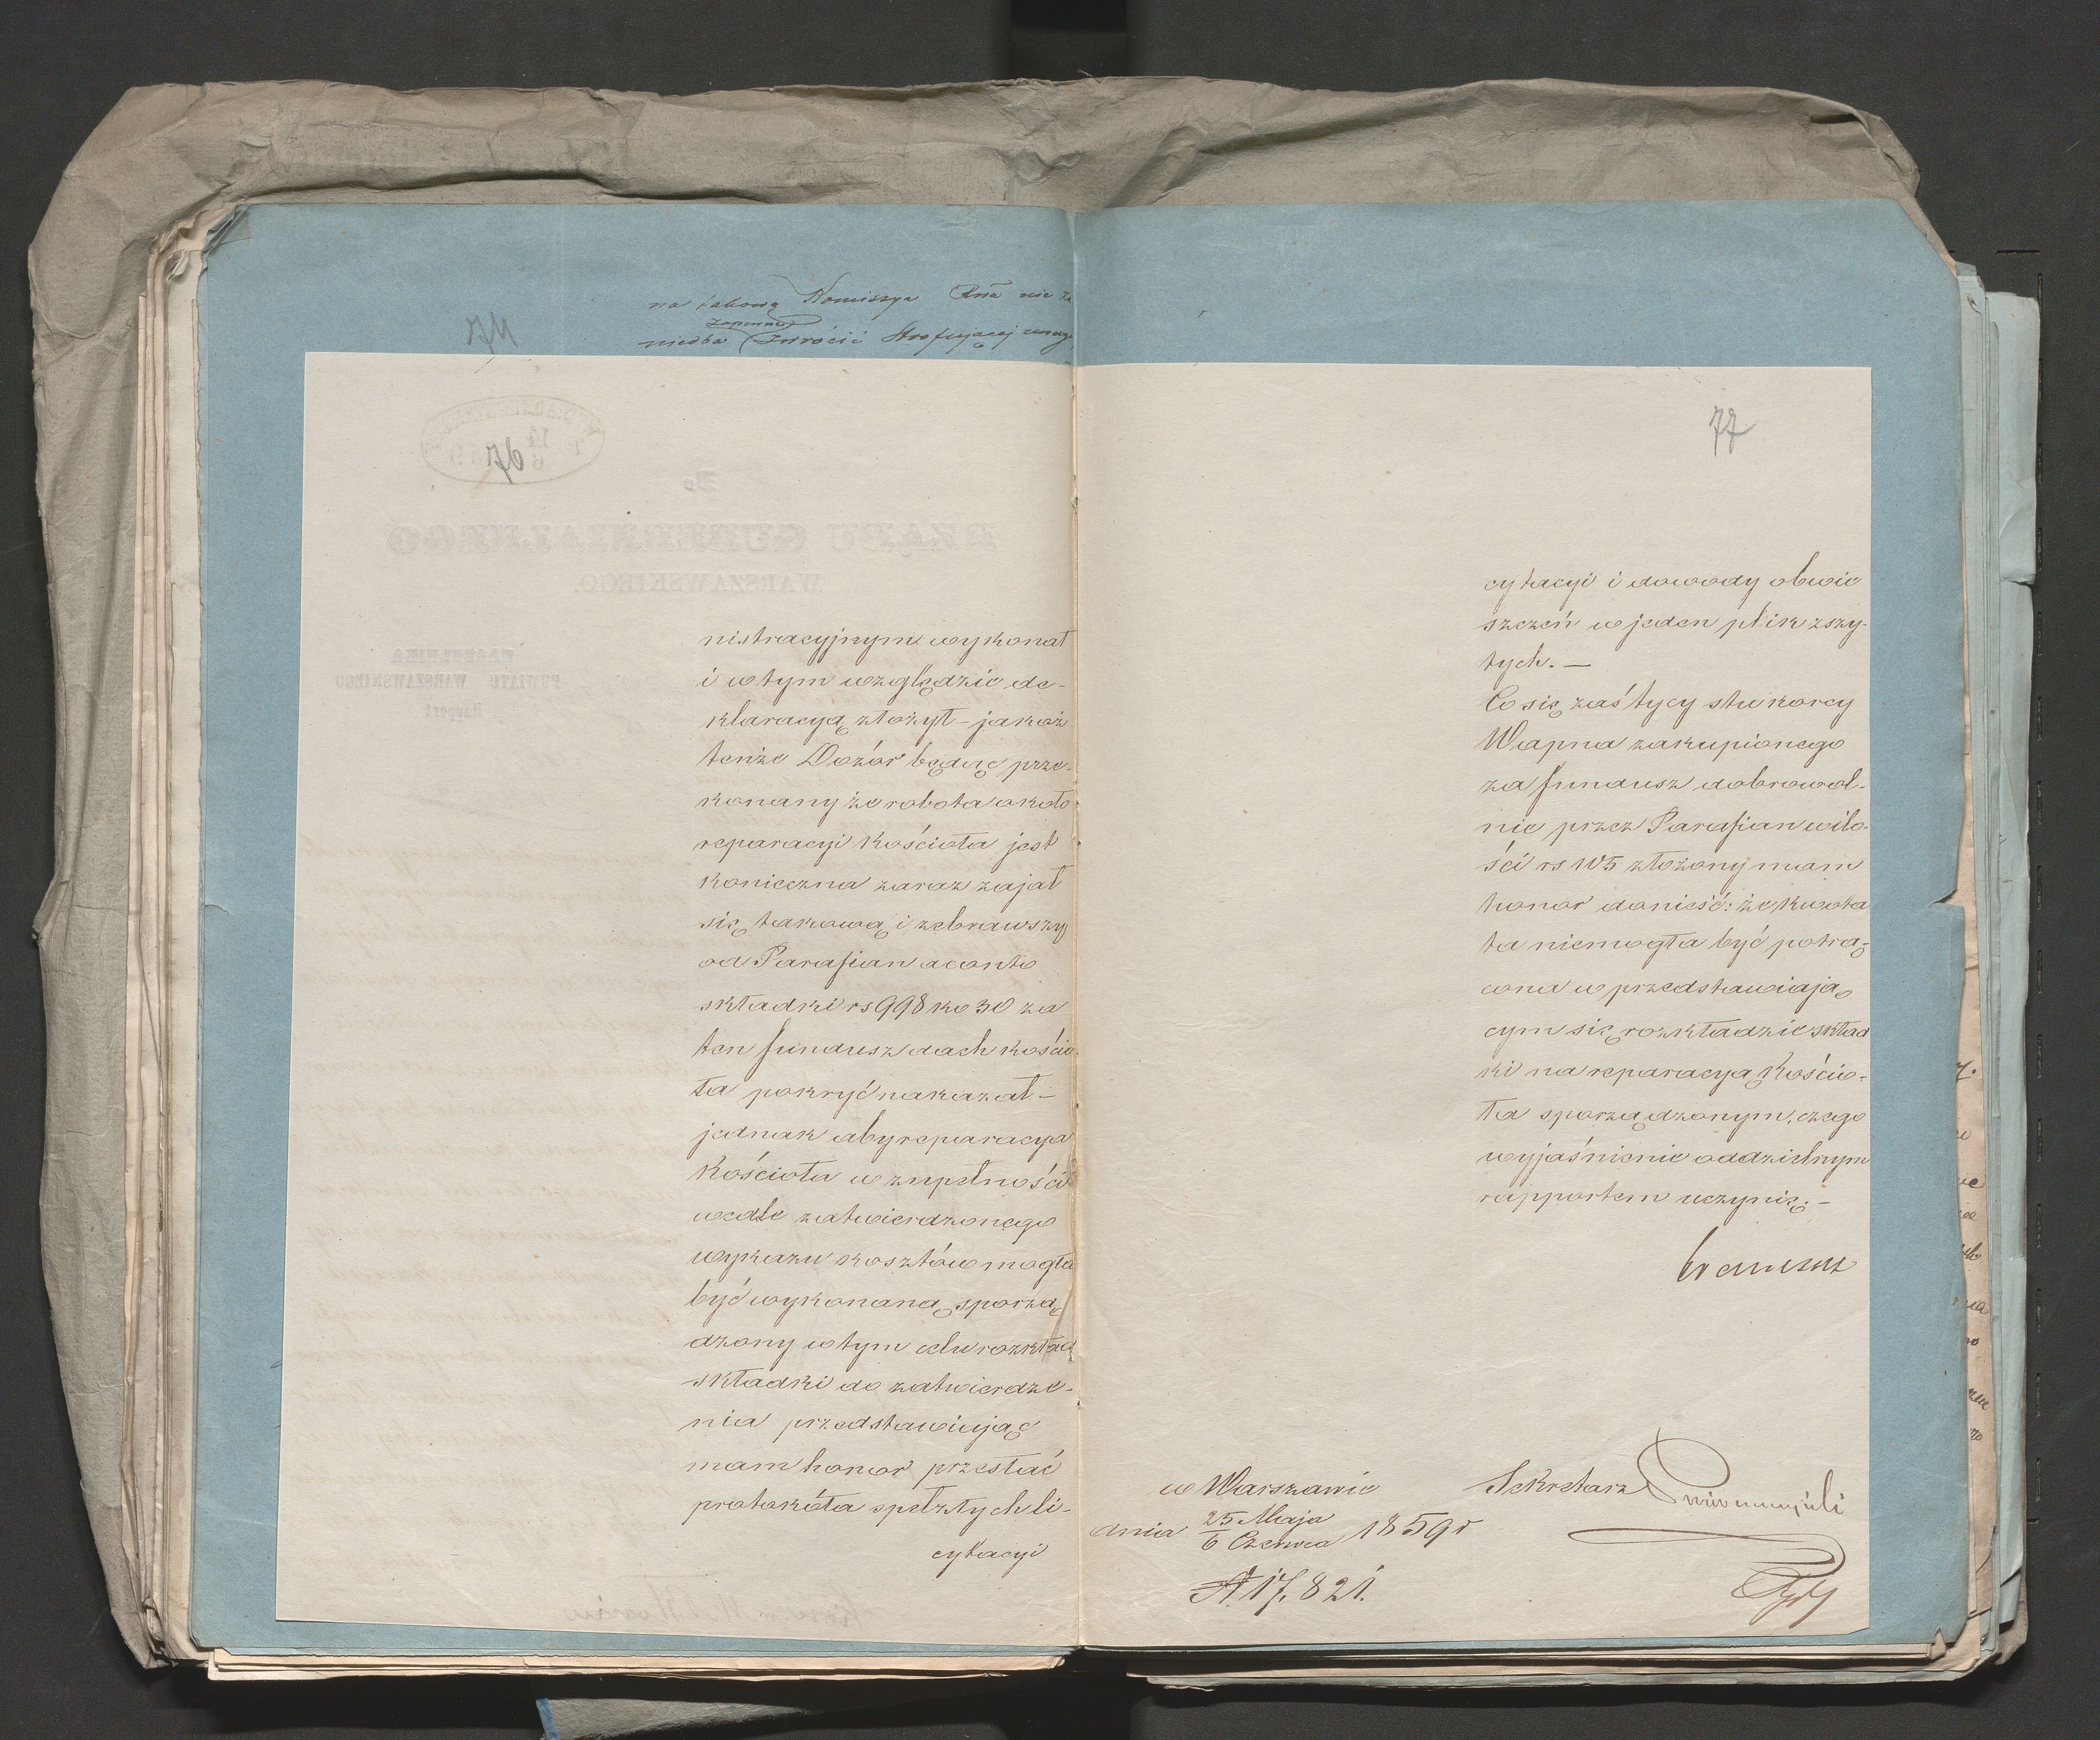 na takową Kommissya Rna nie za
zapomni
niedba zwrócić Strofującej uwagi
nistracyjnym wykonał
i w tym względzie de-
klaracyą złożył – jakoż
tenże Dozór będąc prze-
konany że robota około
reparacyi Kościoła jest
konieczna zaraz zajął
się takową i zebrawszy
od Parafian aconto
składki rs 998 ko 30 za
ten fundusz dach Kościo-
ła pokryć nakazał –
jednak aby reparacya
Kościoła w zupełności
wedle zatwierdzonego
wykazu kosztów mogła
być wykonaną, sporzą
dzony w tym celu rozkład
składki do zatwierdze-
nia przedstawiając
mam honor przesłać
protokóła spełzłych li-
cytacyi
77
cytacyi i dowody obwie
szczeń w jeden plik zszy-
tych. –
Co się zaś tycy stu korcy
Wapna zakupionego
za fundusz dobrowol-
nie przez Parafian w ilo-
ści rs 105 złożony mam
honor donieść: że kwota
ta niemogła być potrą-
cona w przedstawiają
cym się rozkładzie skład
ki na reparacyą Kościo-
ła sporządzonym, czego
wyjaśnienie oddzielnym
rapportem uczynię. –
w Warszawie
dnia 25 Maja / 6 Czerwca 1859 r
Sekretarz
N. 17,821.